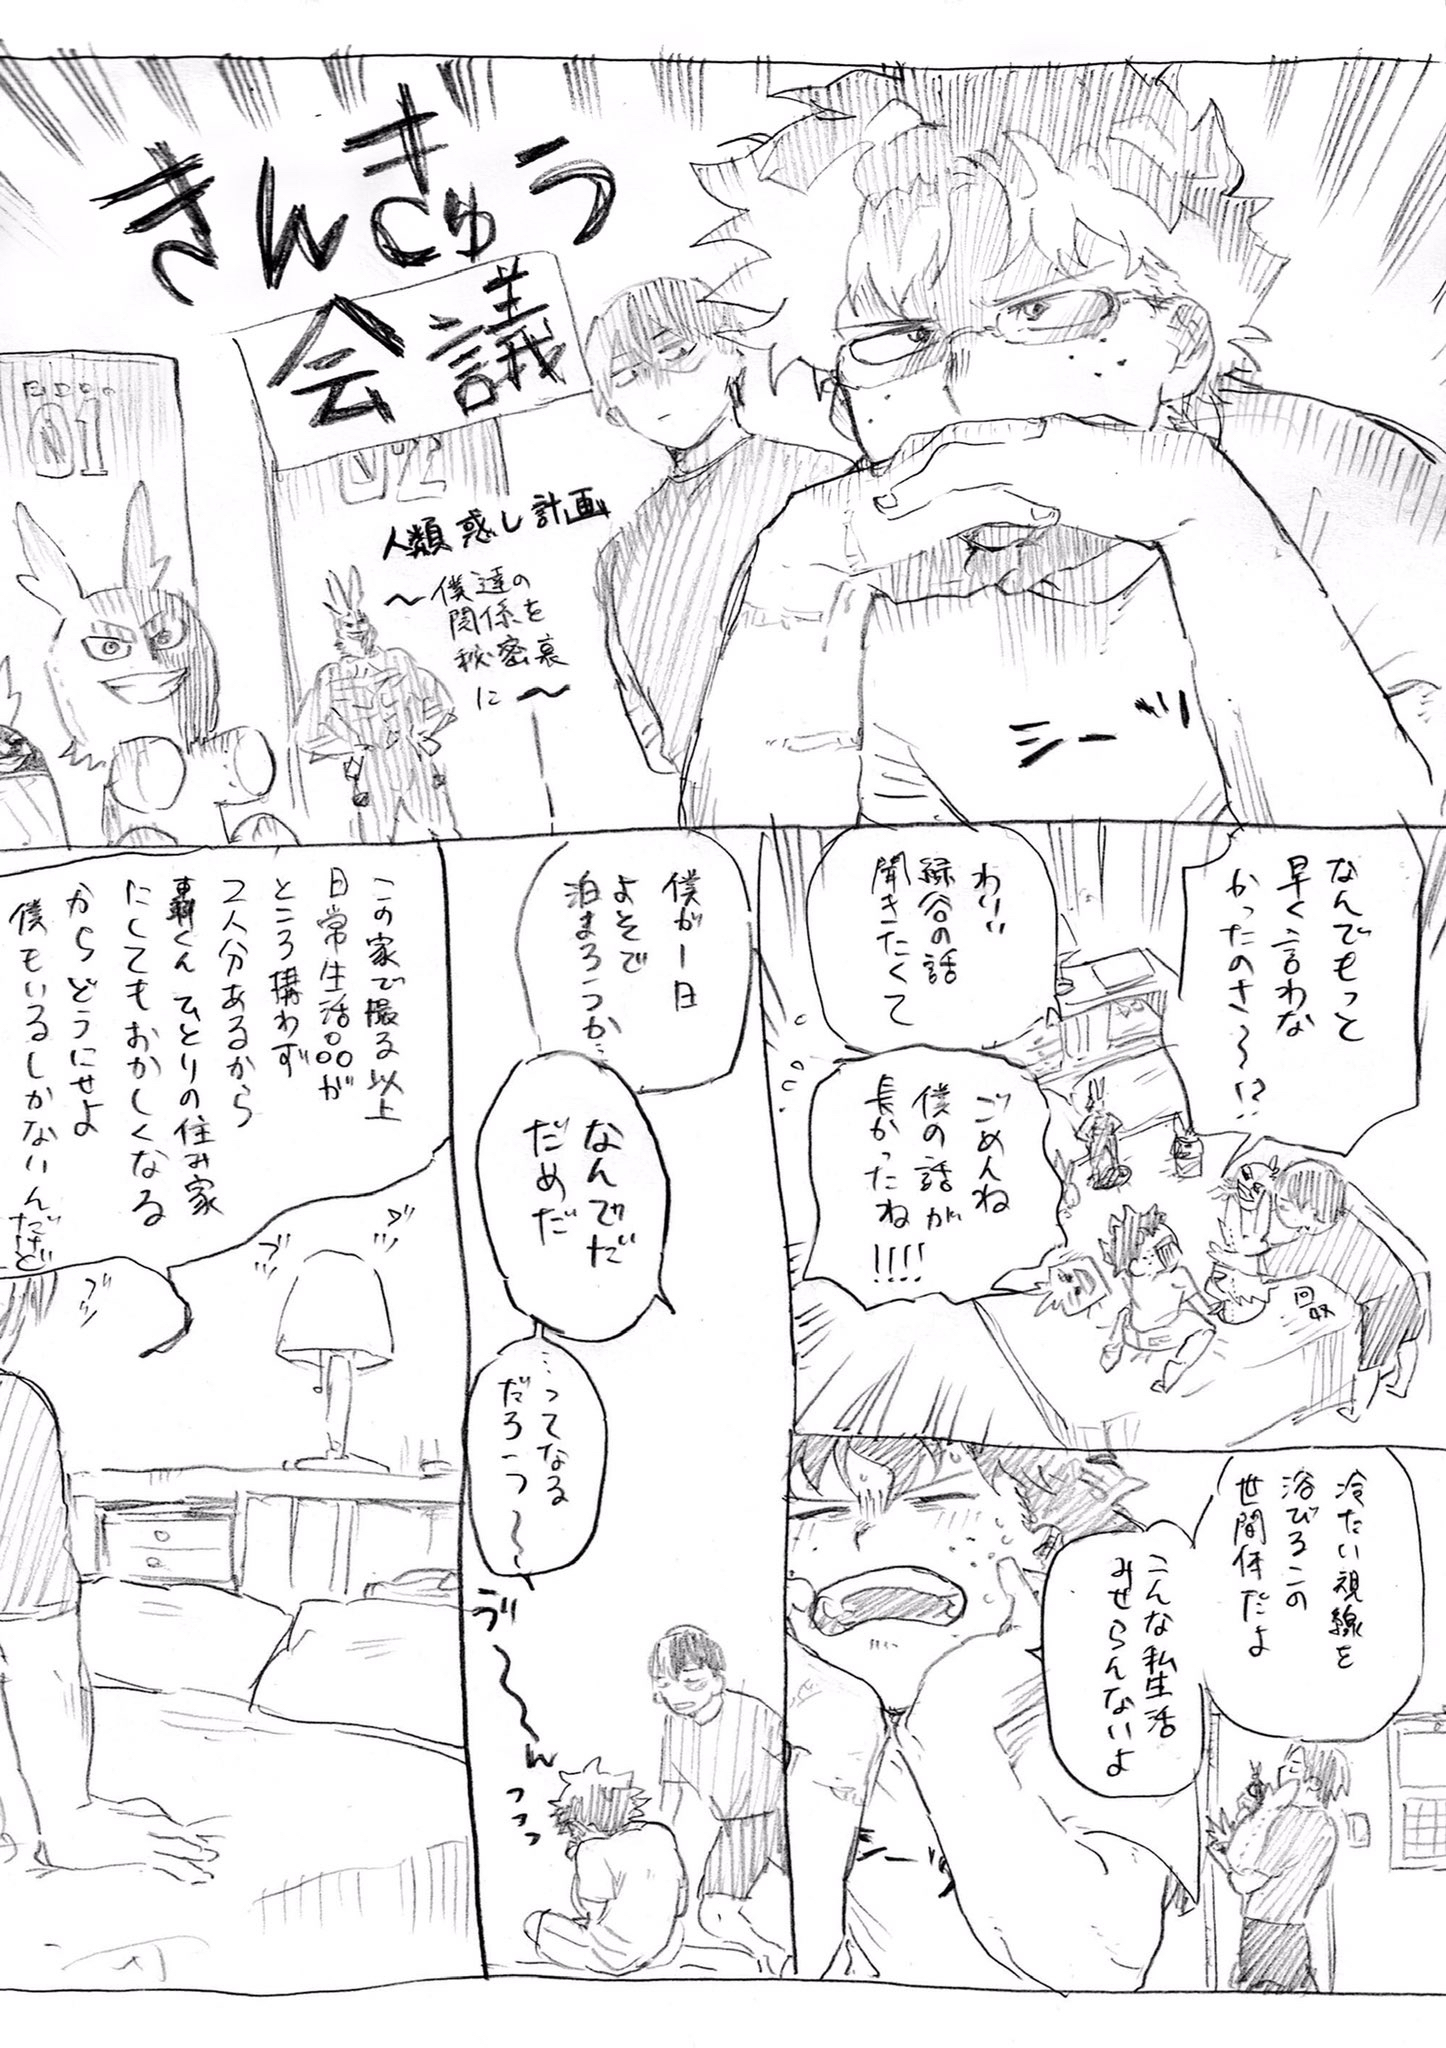 きんきゅう
会議
人類惑し計画
〜僕達の
関係を
秘密裏
に〜
01
02
シーッ
なんでもっと
早く言わな
かったのさ〜!?
わりぃ
緑谷の話
聞きたくて
ごめんね
僕の話が
長かったね
!!!!
回収
冷たい視線を
浴びるこの
世間体だよ
こんな私生活
みせらんないよ
僕が一日
よそで
泊まろうか…
なんでだ
だめだ
…ってなる
だろう〜〜
う〜〜ん
この家で撮る以上
日常生活品が
ところ構わず
2人分あるから
轟くんひとりの住み家
にしてもおかしくなる
からどうにせよ
僕もいるしかないんだけど